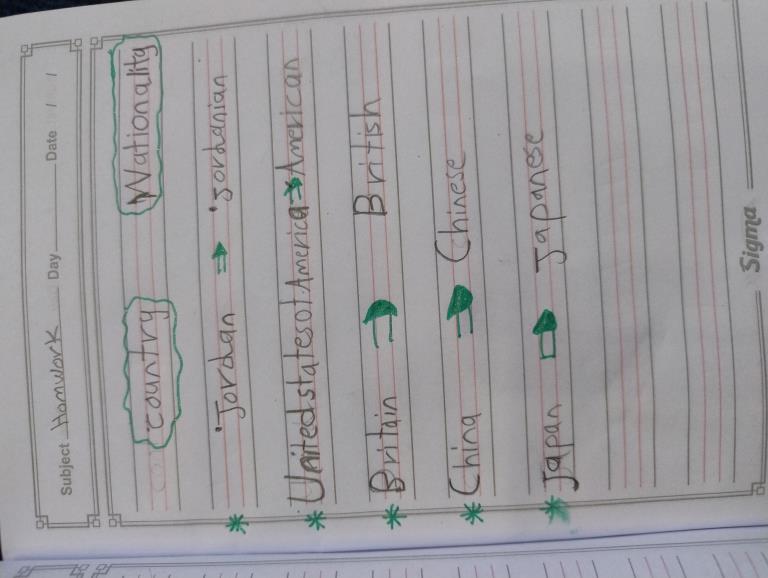 Subject Homwork Day Date / /
country Nationality
* Jordan → Jordanian
* United states of America → American
* Britain → British
* China → Chinese
* Japan → Japanese
Sigma